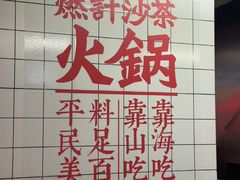 燃計沙茶
火鍋
靠海吃
靠山吃
料足百
平民美